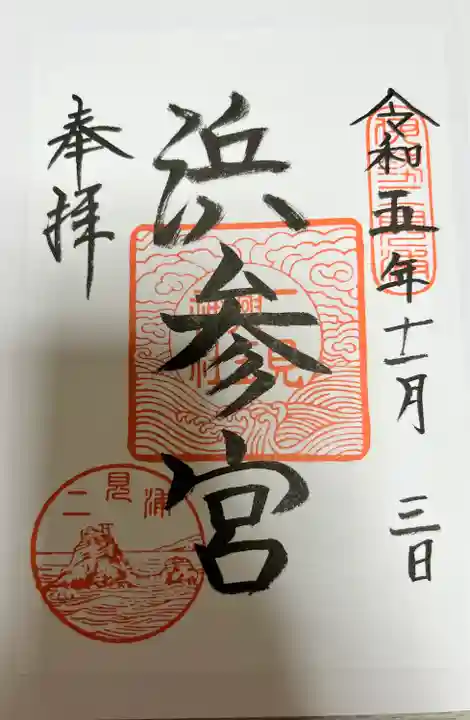 令和五年十一月 三日
伊勢二見浦
浜参宮
二見興玉神社
奉拝
二見浦